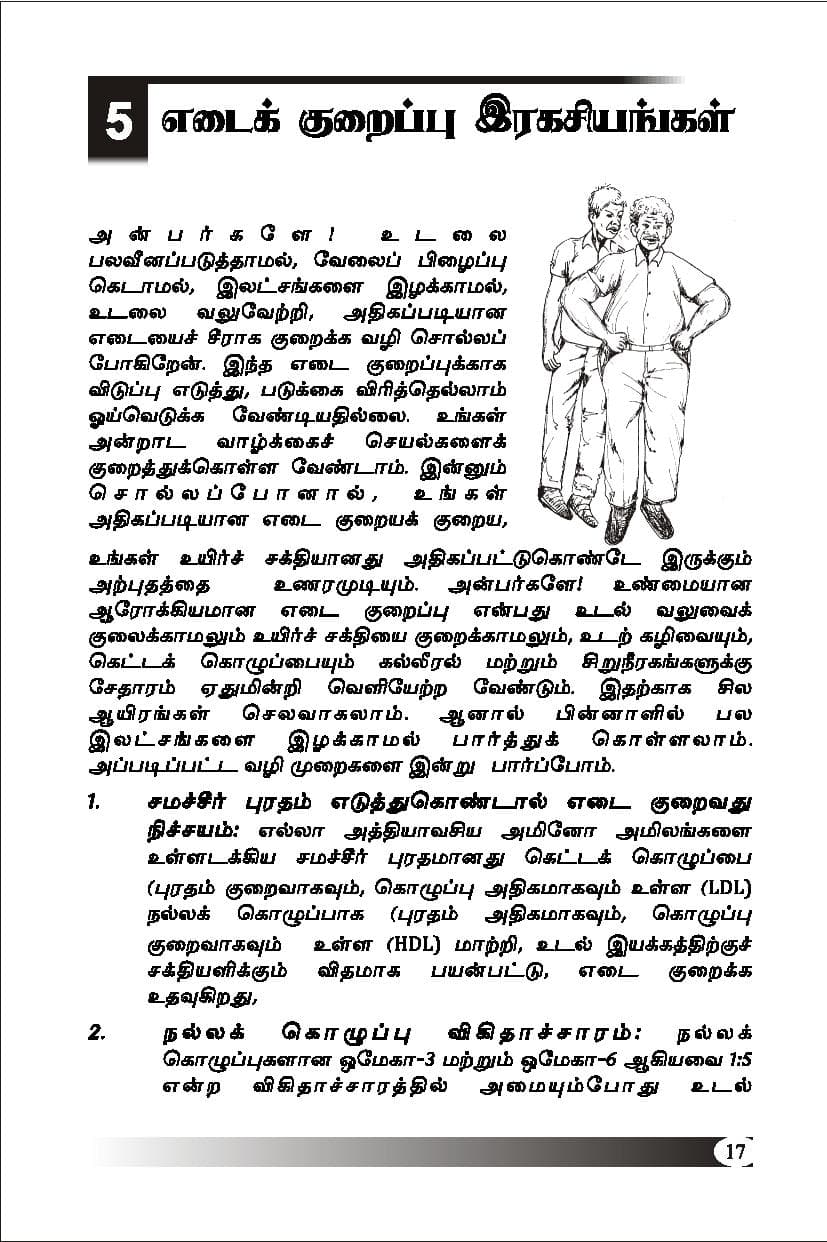 5 எடைக் குறைப்பு இரகசியங்கள்
அன்பர்களே! உடலை
பலவீனப்படுத்தாமல், வேலைப் பிழைப்பு
கெடாமல், இலட்சங்களை இழக்காமல்,
உடலை வலுவேற்றி, அதிகப்படியான
எடையைச் சீராக குறைக்க வழி சொல்லப்
போகிறேன். இந்த எடை குறைப்புக்காக
விடுப்பு எடுத்து, படுக்கை விரித்தெல்லாம்
ஓய்வெடுக்க வேண்டியதில்லை. உங்கள்
அன்றாட வாழ்க்கைச் செயல்களைக்
குறைத்துக்கொள்ள வேண்டாம். இன்னும்
சொல்லப்போனால், உங்கள்
அதிகப்படியான எடை குறையக் குறைய,
உங்கள் உயிர்ச் சக்தியானது அதிகப்பட்டுகொண்டே இருக்கும்
அற்புதத்தை உணரமுடியும். அன்பர்களே! உண்மையான
ஆரோக்கியமான எடை குறைப்பு என்பது உடல் வலுவைக்
குலைக்காமலும் உயிர்ச் சக்தியை குறைக்காமலும், உடற் கழிவையும்,
கெட்டக் கொழுப்பையும் கல்லீரல் மற்றும் சிறுநீரகங்களுக்கு
சேதாரம் ஏதுமின்றி வெளியேற்ற வேண்டும். இதற்காக சில
ஆயிரங்கள் செலவாகலாம். ஆனால் பின்னாளில் பல
இலட்சங்களை இழக்காமல் பார்த்துக் கொள்ளலாம்.
அப்படிப்பட்ட வழி முறைகளை இன்று பார்ப்போம்.
1. சமச்சீர் புரதம் எடுத்துகொண்டால் எடை குறைவது
நிச்சயம்: எல்லா அத்தியாவசிய அமினோ அமிலங்களை
உள்ளடக்கிய சமச்சீர் புரதமானது கெட்டக் கொழுப்பை
(புரதம் குறைவாகவும், கொழுப்பு அதிகமாகவும் உள்ள (LDL)
நல்லக் கொழுப்பாக (புரதம் அதிகமாகவும், கொழுப்பு
குறைவாகவும் உள்ள (HDL) மாற்றி, உடல் இயக்கத்திற்குச்
சக்தியளிக்கும் விதமாக பயன்பட்டு, எடை குறைக்க
உதவுகிறது,
2. நல்லக் கொழுப்பு விகிதாச்சாரம்: நல்லக்
கொழுப்புகளான ஒமேகா-3 மற்றும் ஒமேகா-6 ஆகியவை 1:5
என்ற விகிதாச்சாரத்தில் அமையும்போது உடல்
17